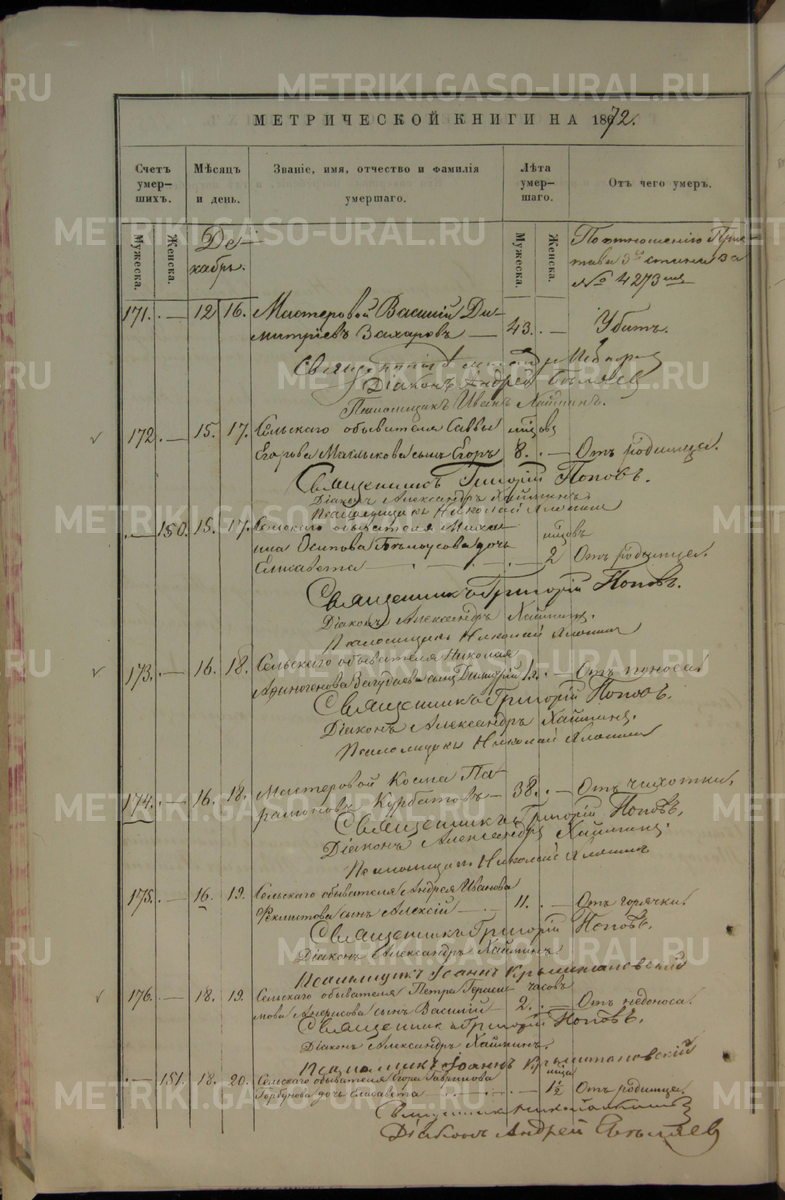 METRIKI.GASO-URAL.RU
МЕТРИЧЕСКОЙ КНИГИ НА 1872.
Счетъ умер-шихъ.
Мужеска.
Женска.
Мѣсяцъ и день.
Званіе, имя, отчество и фамилія умершаго.
Лѣта умер-шаго.
Мужеска.
Женска.
Отъ чего умеръ.
Де-
кабрь.
По отношенію При-
става 3го стана за
№ 4273мъ
171. — 12 16. Мастеровой Василій Ди-
митріевъ Захаровъ — 43. — Убитъ.
Діаконъ Андрей Бѣляевъ
Псаломщикъ Иванъ Хаймин.
172. — 15. 17. Сельскаго обывателя Саввы мцовъ
Егорова сынъ Егоръ 8. — Отъ родимца.
Священникъ Григорій Поповъ.
Діаконъ Александръ Хайминъ
Псаломщикъ Николай
— 150. 15. 17. Сельскаго обывателя
Осипова Бѣлоусова дочь мцовъ
Елисавета — 2 Отъ родимца.
Священникъ Григорій Поповъ.
Діаконъ Александръ Хайминъ.
Псаломщикъ Николай
173. — 16. 18. Сельскаго обывателя Николая
Афиногенова сынъ Димитрій 1½. — Отъ поноса.
Священникъ Григорій Поповъ.
Діаконъ Александръ Хайминъ.
Псаломщикъ Николай
174. — 16. 18. Мастеровой Косма Па-
рамоновъ Курбатовъ — 38. — Отъ чихотки.
Священникъ Григорій Поповъ.
Діаконъ Александръ Хайминъ.
Псаломщикъ Николай
175. — 16. 19. Сельскаго обывателя Андрея Иванова
Феклистова сынъ Алексій — 11. — Отъ горячки.
Священникъ Григорій Поповъ.
Діаконъ Александръ Хайминъ.
Псаломщикъ Іоаннъ Крыжановскій
176. — 18. 19. Сельскаго обывателя Петра Гераси- часовъ
мова сынъ Василій — 2. — Отъ недоноса.
Священникъ Григорій Поповъ.
Діаконъ Александръ Хайминъ.
Псаломщикъ Іоаннъ Крыжановскій
— 151. 18. 20. Сельскаго обывателя Егора Гаврилова мца
Горбунова дочь Елисавета — 1½ Отъ родимца.
Священникъ
Діаконъ Андрей Бѣляевъ